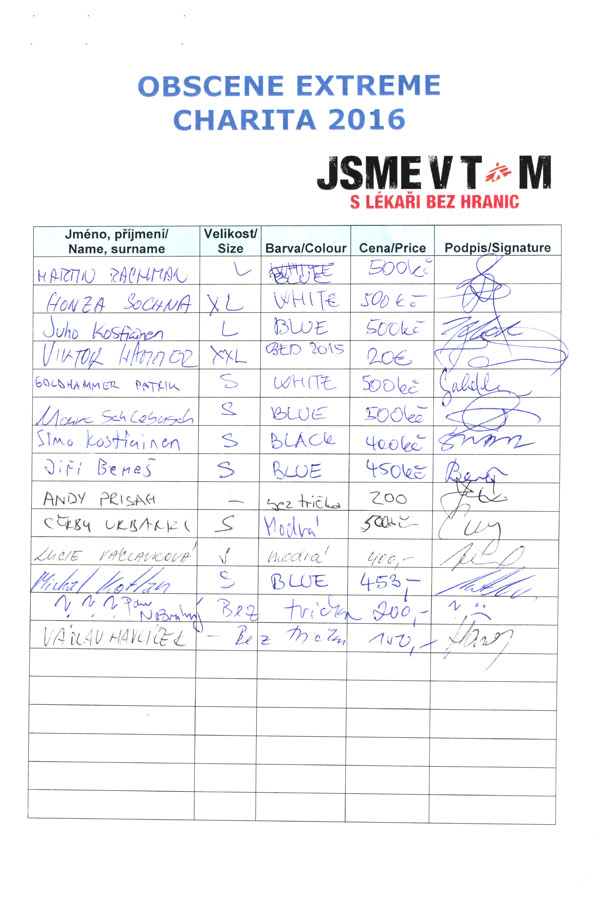 OBSCENE EXTREME
CHARITA 2016
JSME V T M
S LÉKAŘI BEZ HRANIC
Jméno, příjmení/ Name, surname Velikost/ Size Barva/Colour Cena/Price Podpis/Signature
MARTIN L BLUE 500kč
HONZA SOCHNA XL WHITE 500kč
Juho Kostiainen L BLUE 500kč
VIKTOR HAMMER XXL RED 2015 20€
GOLDHAMMER PATRIK S WHITE 500kč
Marc S BLUE 500kč
Simo Kostiainen S BLACK 400kč
Jiří Beneš S BLUE 450kč
ANDY PRISAH – bez trička 200
URBANKI S Modrá 500kč
LUCIE VÁCLAVKOVÁ S modrá 400,-
Michal Kotlan S BLUE 453,-
Pan Bez trička 200,-
VÁCLAV HAVLÍČEK – Bez 100,-